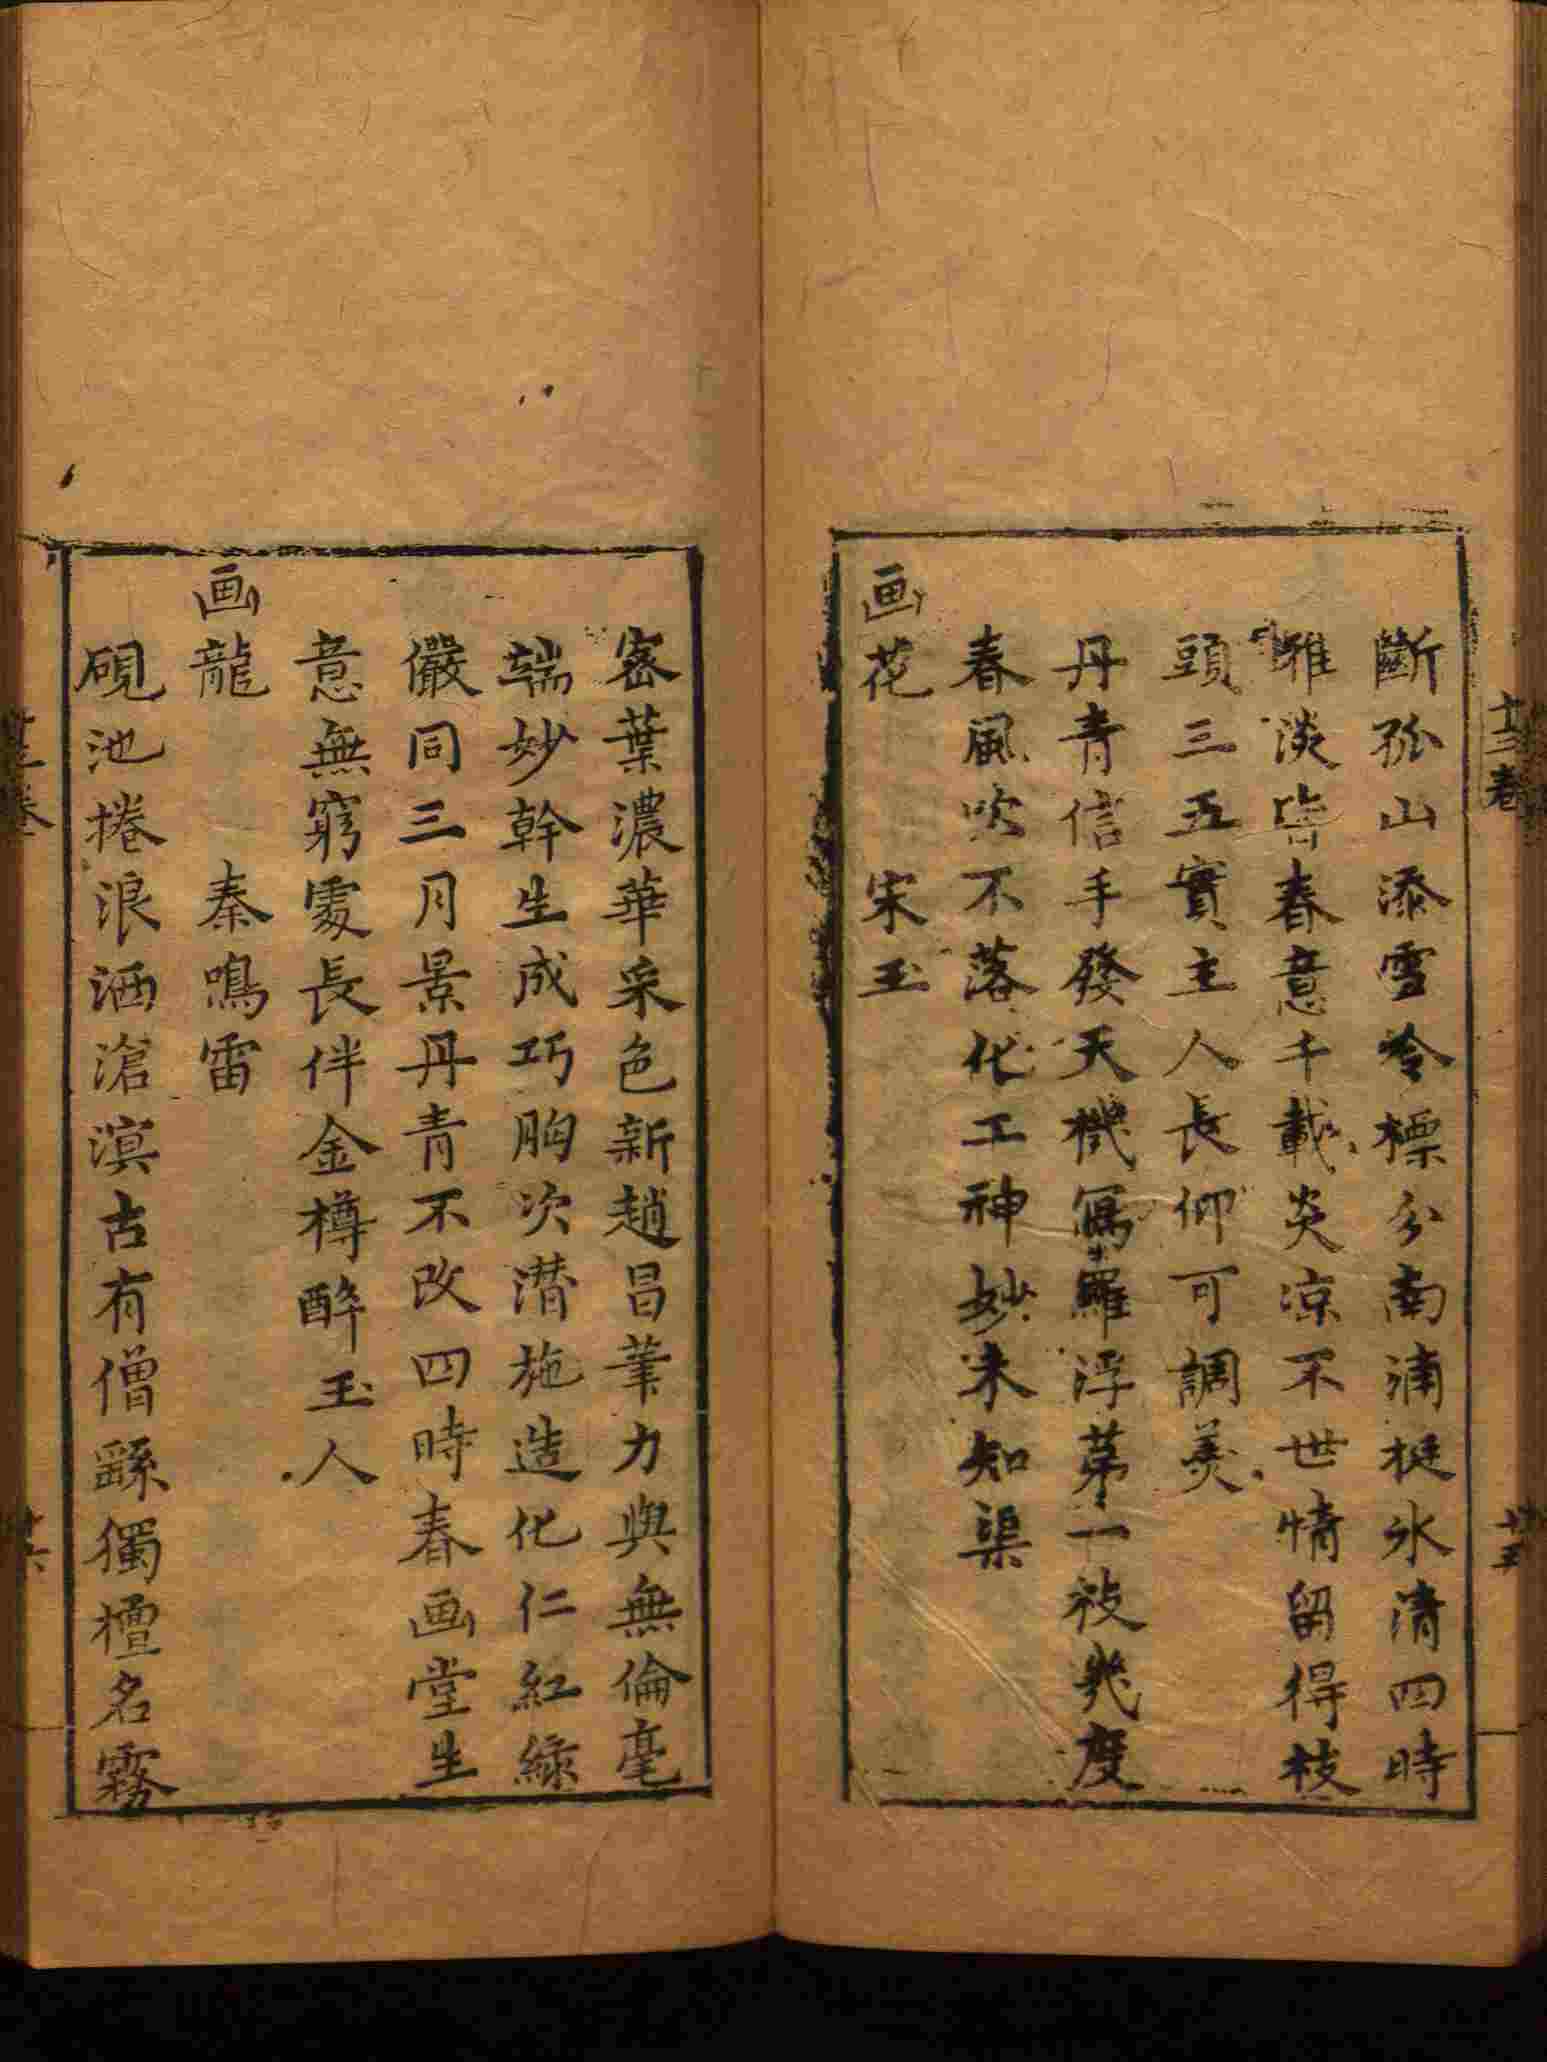 斷孤山添雪冷標分南浦挺氷清四時
雅淡皆春意千載炎凉不世情留得枝
頭三五實主人長仰可調羹
丹青信手發天機寫羅浮第一枝幾度
春風吹不落化工神妙未知渠
画花 宋玉
密葉濃華采色新趙昌筆力與無倫毫
端妙幹生成巧胸次潛施造化仁紅綠
儼同三月景丹青不改四時春画堂生
意無窮處長伴金樽醉玉人
画龍 秦鳴雷
硯池捲浪洒滄溟古有僧繇獨檀名霧
十三卷